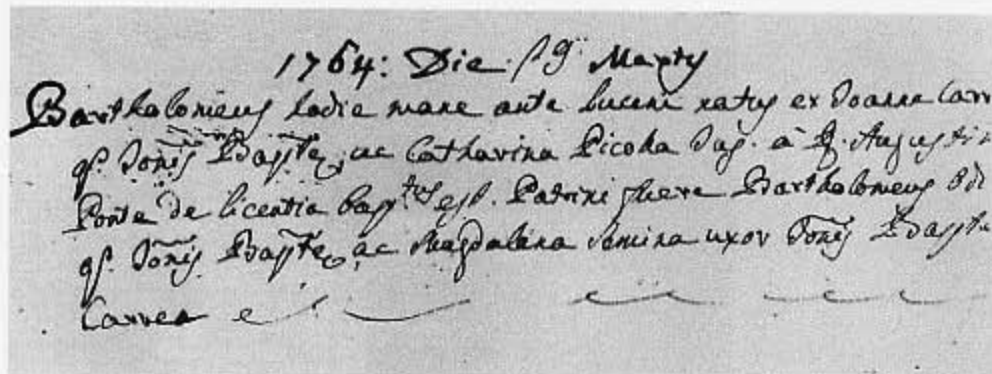 1764: Die 19 Martij
Bartholomeus hodie mane ante lucem natus ex Joanne Carr
qs. Jonis Baptte, ac Catharina Picoha Jug. à R. Augustin
Ponte de licentia baptus est. Patrini fuere Bartholomeus
qs. Jonis Baptte, ac Magdalena uxor Jonis Baptte
Carrea